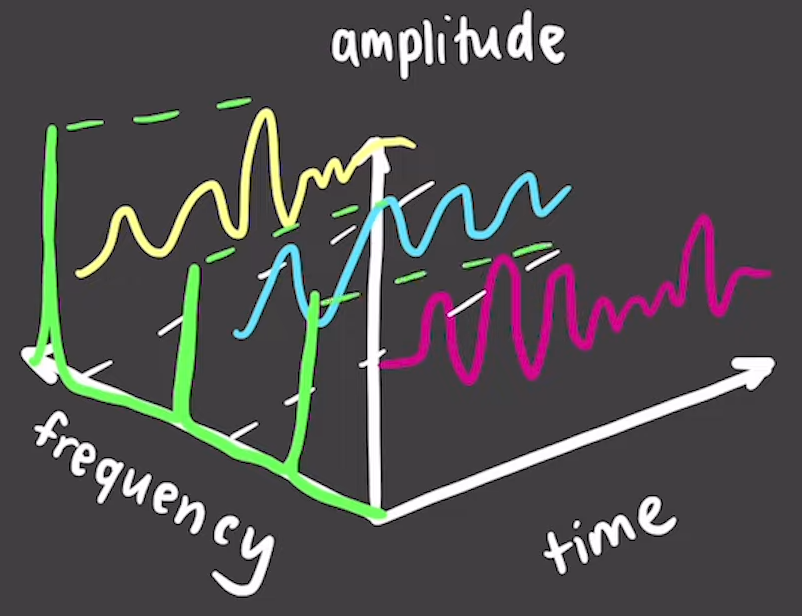 amplitude
frequency
time